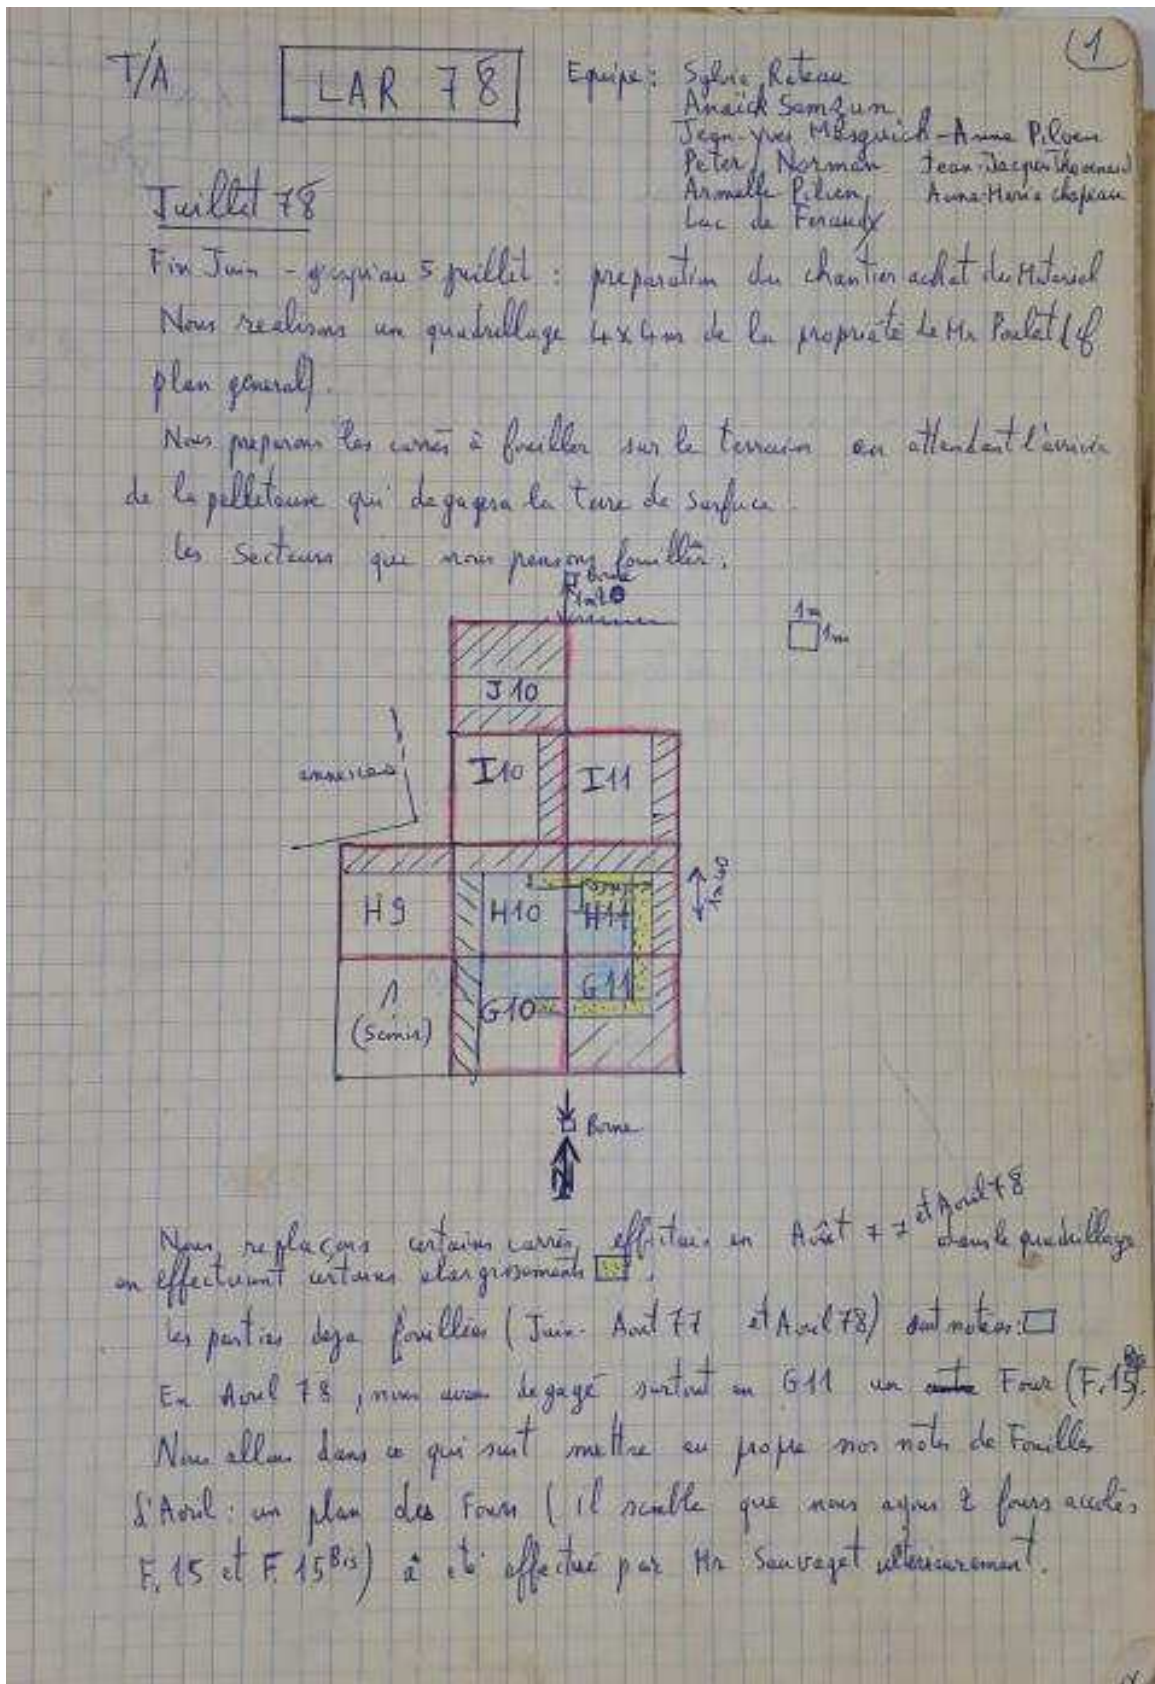 (1
T/A
LAR 78
Equipe : Sylvie Rateau
Anaïck Samzun
Jean-Yves Mesguich - Anne Pilven
Peter Norman Jean-Jacques Thevenard
Armelle Pilven, Anne-Marie chapeau
Luc de
Juillet 78
Fin Juin - jusqu'au 5 juillet : preparation du chantier achat du Materiel
Nous realisons un quadrillage 4x4m de la propriété de Mr Poulet (cf
plan general).
Nous preparons les carrés à fouiller sur le terrain en attendant l'arrivée
de la pelleteuse qui degagera la terre de surface.
Les Secteurs que nous pensons fouiller.
Borne
1m
1m
1m
J10
I10 I11
annexes
H9 H10 H11
1m40
1
(Semis)
G10 G11
Borne
N
et Avril 78
Nous replaçons certains carrés effectués en Août 77 dans le quadrillage
en effectuant certains elargissements .
Les parties deja fouillées (Juin - Aout 77 et Avril 78) sont notées :
En Avril 78, nous avons degagé surtout en G11 un Four (F.15 Bis).
Nous allons dans ce qui suit mettre au propre nos notes de Fouilles
d'Avril : un plan des Fours ( il semble que nous ayons 2 fours accolés
F.15 et F.15 Bis) a été effectué par Mr Sauvaget ulterieurement.